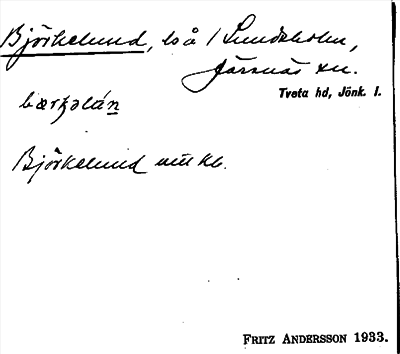 Björkelund, ls å / Lundsholm,
Järsnäs sn.
Tveta hd, Jönk. l.
bærkəlán
Björkelund uttkb.
FRITZ ANDERSSON 1933.